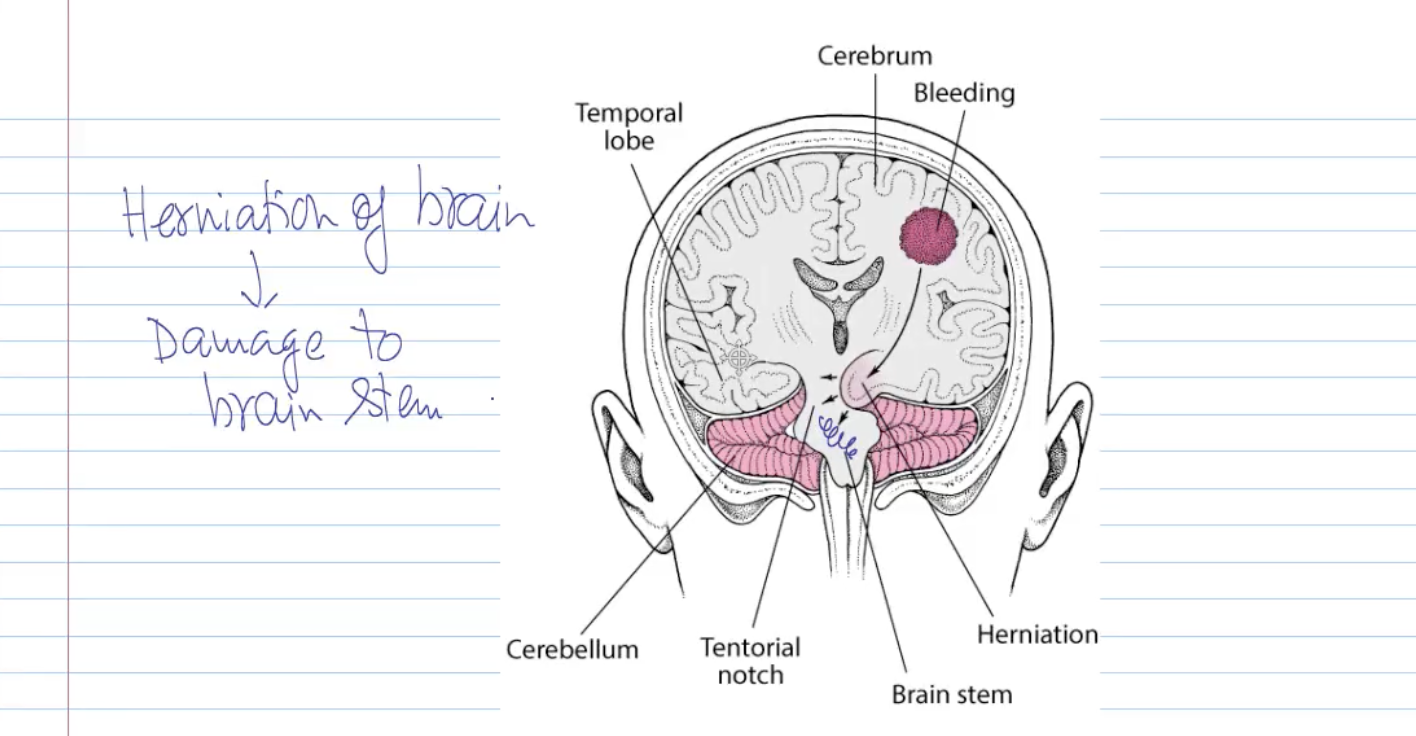 Cerebrum
Bleeding
Temporal
lobe
Herniation of brain
↓
Damage to
brain stem
Cerebellum
Tentorial
notch
Herniation
Brain stem